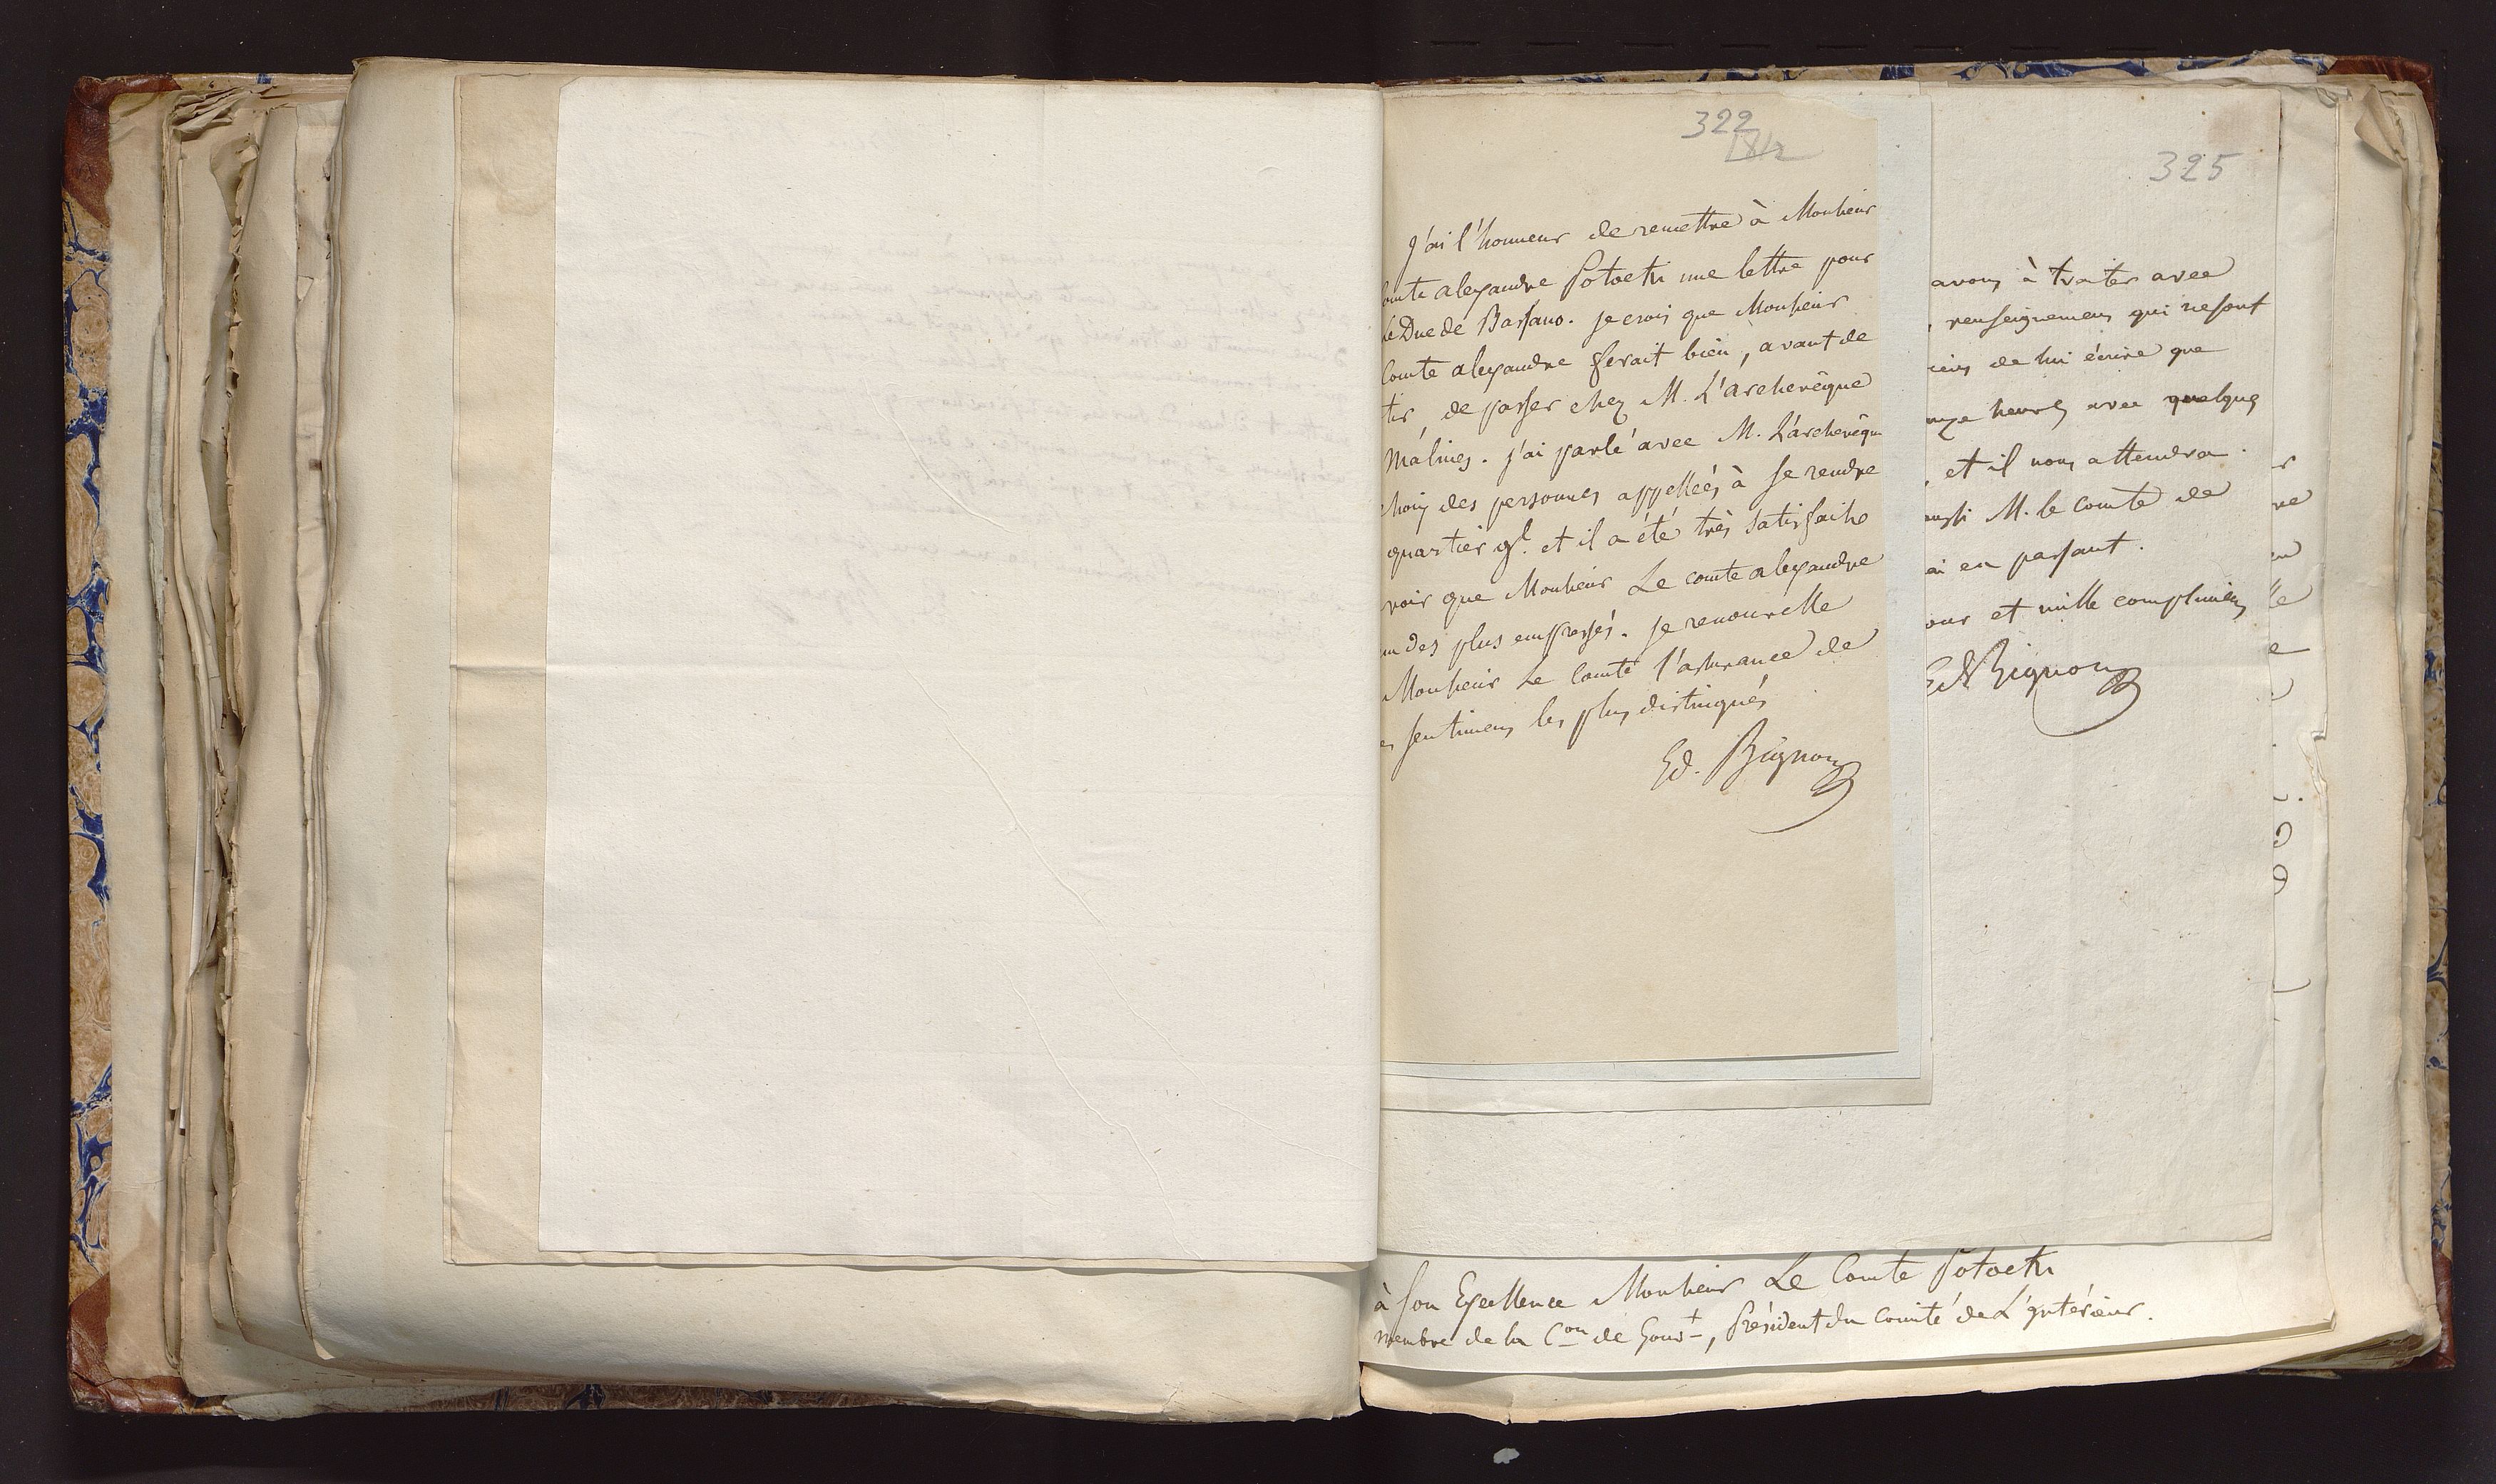 322
1812
J'ai l'honneur de remettre à Monsieur
omte alexandre Potocki une lettre pour
Le Duc de Bassano. je crois que Monsieur
Comte alexandre ferait bien, avant de
tir, de passer chez M. L'archevêque
Malines. j'ai parlé avec M. L'archevêque
hoix des personnes appellées à se rendre
quartier gl. et il a été très satisfait
voir que Monsieur Le comte alexandre
un des plus empressés. je renouvelle
Monsieur Le Comte l'assurance de
es sentimens les plus distingués
Ed. Bignon
325
avons à traiter avec
, renseignemens qui ne sont
de lui écrire que
onze heures avec quelques
, et il nous attendra.
aussi M. le comte de
ai en passant.
our et mille complimens
Ed Bignon
à Son Excellence Monsieur Le Comte Potocki
membre de la Con de Gouvt, Président du Comité de L'Intérieur.